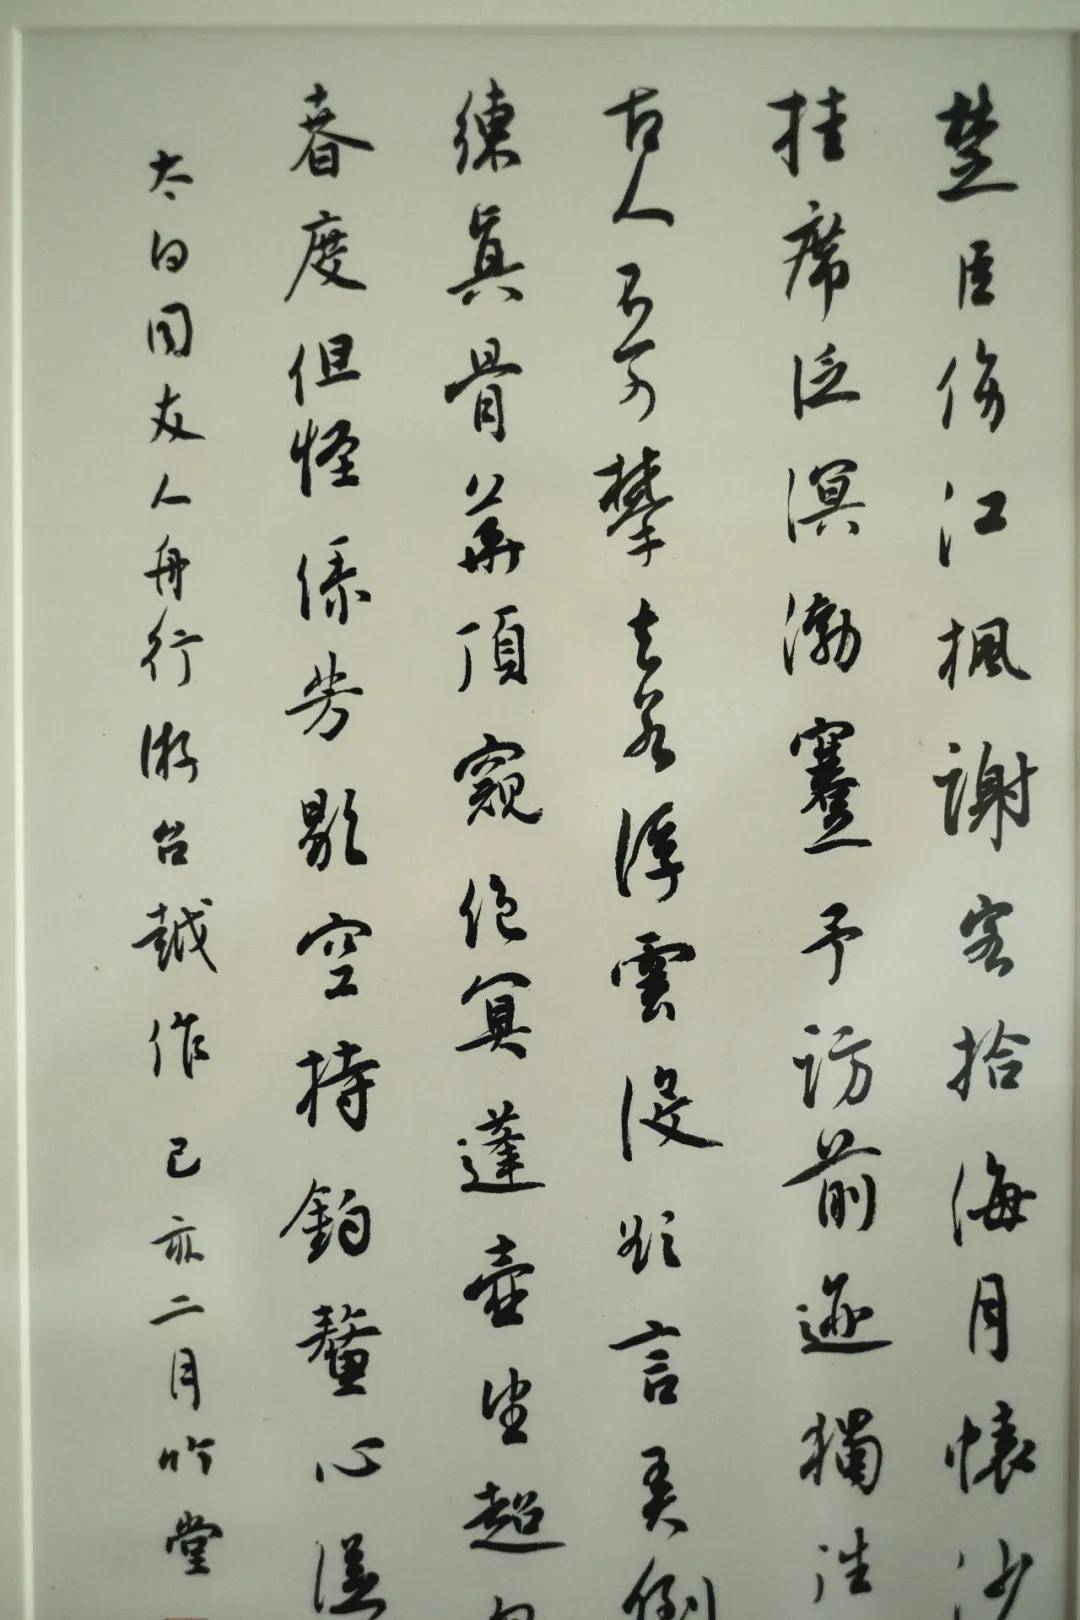 楚臣傷江楓謝客拾海月懷沙
挂席泛溟渤蹇予訪前迹獨往
古人不可攀去若浮雲沒欲言弄倒
練真骨華頂窺絕冥蓬壺望超
春度但怪綠芳歇空持釣鰲心從
太白同友人舟行游台越作己亥二月竹堂